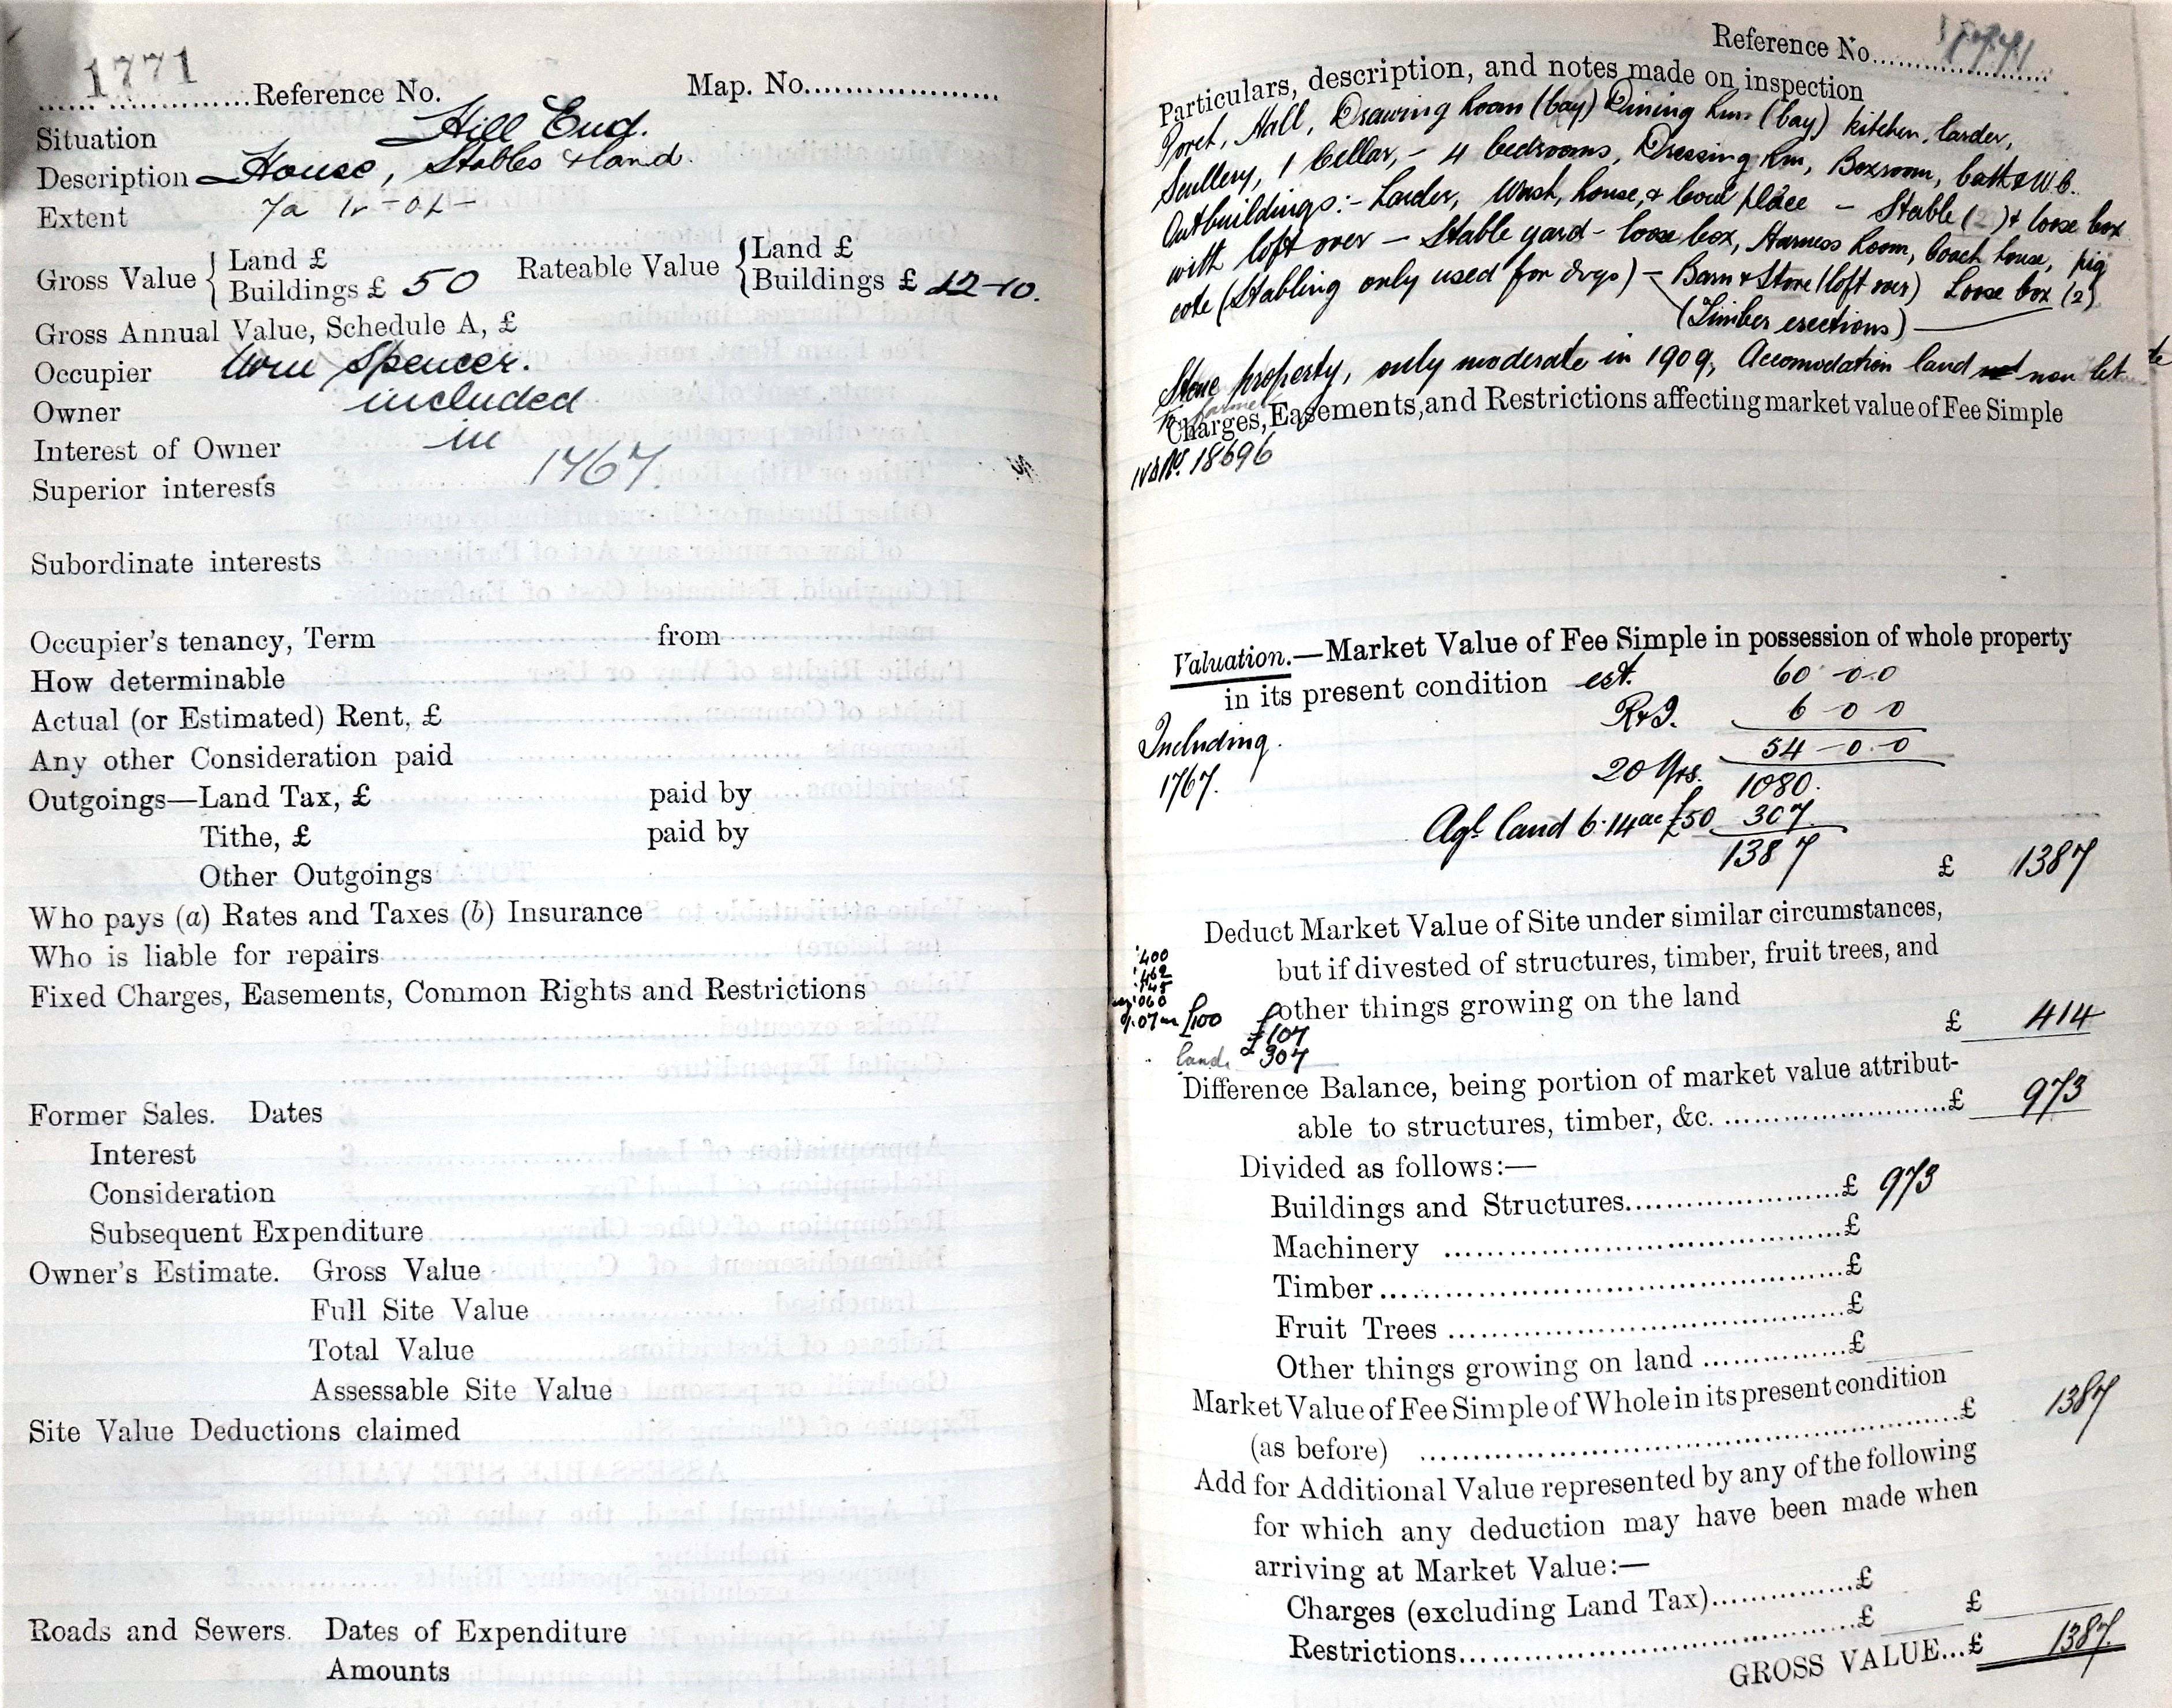 1771
Reference No. Map. No.
Situation Hill End.
Description House, Stables & land.
Extent 7a 1r -0p-
Gross Value { Land £
Buildings £ 50
Rateable Value { Land £
Buildings £ 42-10.
Gross Annual Value, Schedule A, £
Occupier Wm Spencer.
Owner included
Interest of Owner in
Superior interests 1767.
Subordinate interests
Occupier's tenancy, Term from
How determinable
Actual (or Estimated) Rent, £
Any other Consideration paid
Outgoings—Land Tax, £ paid by
Tithe, £ paid by
Other Outgoings
Who pays (a) Rates and Taxes (b) Insurance
Who is liable for repairs
Fixed Charges, Easements, Common Rights and Restrictions
Former Sales. Dates
Interest
Consideration
Subsequent Expenditure
Owner's Estimate. Gross Value
Full Site Value
Total Value
Assessable Site Value
Site Value Deductions claimed
Roads and Sewers. Dates of Expenditure
Amounts
Reference No. 1771
Particulars, description, and notes made on inspection
Porch, Hall, Drawing Room (bay) Dining Rm. (bay) kitchen, larder,
Scullery, 1 Cellar, - 4 bedrooms, Dressing Rm, Boxroom, bath & W.C.
Outbuildings:- Larder, Wash, house, & Coal place - Stable (2) & loose box
with loft over - Stable yard - loose box, Harness Room, Coach house, pig
cote (Stabling only used for dogs) - Barn & Store (loft over) Loose box (2)
(Timber erections)
Stone property, only moderate in 1909, Accomodation land now let
to farmer
Charges, Easements, and Restrictions affecting market value of Fee Simple
No. 18696
Valuation.—Market Value of Fee Simple in possession of whole property
in its present condition est. 60-0-0
R&I. 6-0-0
54-0-0
Including
1767.
20 Yrs. 1080.
Agl. land 6.14ac £50 307
1387
£ 1387
Deduct Market Value of Site under similar circumstances,
but if divested of structures, timber, fruit trees, and
other things growing on the land
£ 414
.400
.462
.145
.060
1.07ac £100 £107
land £307
Difference Balance, being portion of market value attribut-
able to structures, timber, &c. £ 973
Divided as follows:—
Buildings and Structures £ 973
Machinery £
Timber £
Fruit Trees £
Other things growing on land £
Market Value of Fee Simple of Whole in its present condition
(as before) £ 1387
Add for Additional Value represented by any of the following
for which any deduction may have been made when
arriving at Market Value:—
Charges (excluding Land Tax) £
Restrictions £ £
GROSS VALUE... £ 1387.